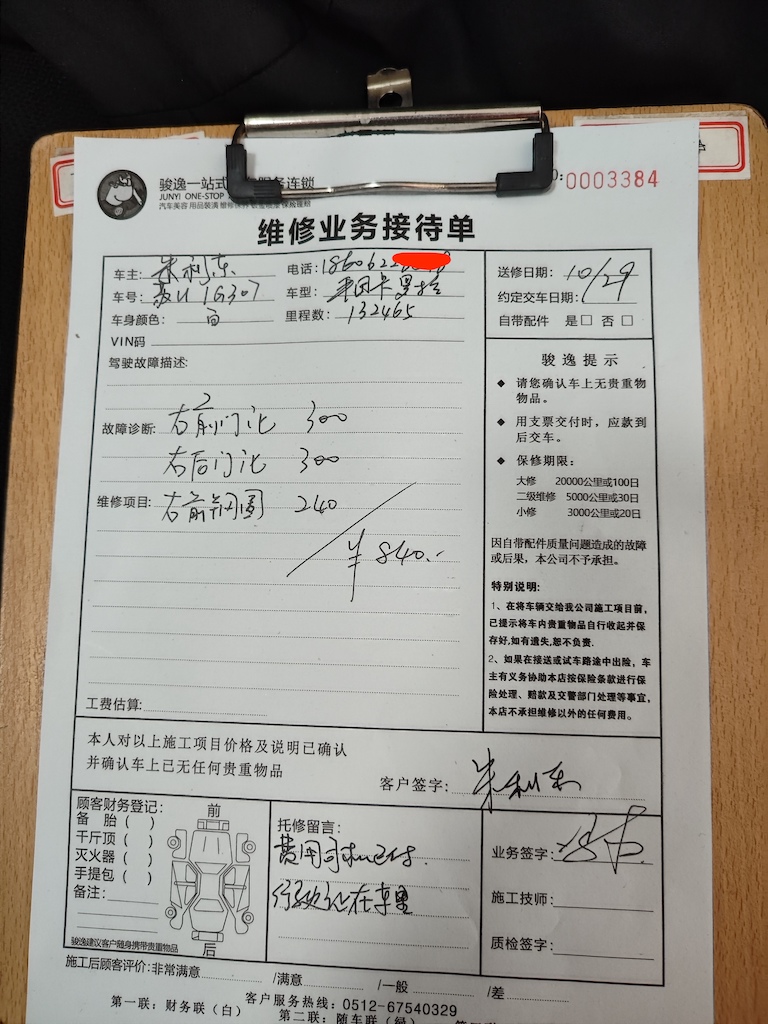 骏逸一站式 服务连锁
JUNYI ONE-STOP
汽车美容 用品装潢
:0003384
维修业务接待单
车主: 朱利东 电话:1860622
车号: 苏U 1G307 车型: 丰田卡罗拉
车身颜色: 白 里程数: 132465
VIN码
送修日期: 10/29
约定交车日期:
自带配件 是□ 否□
驾驶故障描述:
故障诊断: 右前门 300
右后门 300
维修项目: 右前 240
¥840.-
工费估算:
骏逸提示
◆ 请您确认车上无贵重物
物品。
◆ 用支票交付时，应款到
后交车。
◆ 保修期限：
大修 20000公里或100日
二级维修 5000公里或30日
小修 3000公里或20日
因自带配件质量问题造成的故障
或后果，本公司不予承担。
特别说明:
1、在将车辆交给我公司施工项目前，
已提示将车内贵重物品自行收起并保
存好,如有遗失,恕不负责.
2、如果在接送或试车路途中出险，车
主有义务协助本店按保险条款进行保
险处理、赔款及交警部门处理等事宜,
本店不承担维修以外的任何费用。
本人对以上施工项目价格及说明已确认
并确认车上已无任何贵重物品
客户签字: 朱利东
顾客财务登记:
备 胎 ( )
千斤顶 ( )
灭火器 ( )
手提包 ( )
备注:
前
后
骏逸建议客户随身携带贵重物品
托修留言:
费用司机已付.
行驶证在车里
业务签字:
施工技师:
质检签字:
施工后顾客评价: 非常满意 /满意 /一般 /差
客户服务热线: 0512-67540329
第一联：财务联（白） 第二联：随车联（绿）